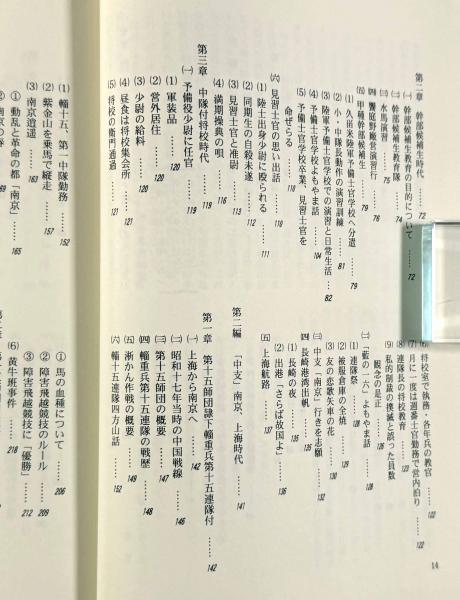 第二章　幹部候補生時代
㈠　幹部候補生教育の目的について …… 72
㈡　幹部候補生教育隊 …… 74
㈢　水馬演習 …… 75
㈣　饗庭野廠営演習行 …… 76
㈤　甲種幹部候補生 …… 79
⑴　久留米陸軍予備士官学校へ分遣 …… 79
⑵　小・中隊長動作の演習訓練 …… 81
⑶　陸軍予備士官学校での演習と日常生活 …… 82
⑷　予備士官学校よもやま話 …… 104
⑸　予備士官学校卒業、見習士官を
命ぜらる …… 110
㈥　見習士官の思い出話 …… 110
⑴　陸士出身少尉に殴られる …… 111
⑵　同期生の自殺未遂 …… 112
⑶　見習士官と准尉 …… 114
⑷　満期操典の唄 …… 116
第三章　中隊付将校時代 …… 119
㈠　予備役少尉に任官 …… 119
⑴　軍装品 …… 120
⑵　営外居住 …… 120
⑶　少尉の給料 …… 120
⑷　昼食は将校集会所 …… 121
⑸　将校の衛門通過 …… 121
⑹　将校室で執務・各年兵の教官 …… 122
⑺　月に一度は週番士官勤務で営内泊り …… 122
⑻　連隊長の将校教育
⑼　私的制裁の撲滅と誤った員数
観念の是正
㈡　「藍の一六」よもやま話 …… 128
⑴　連隊祭 …… 128
⑵　被服倉庫の全焼 …… 129
⑶　友の悲歌火車の花 …… 130
㈢　中支「南京」行きを志願 …… 135
㈣　長崎港湾出帆 …… 136
⑴　長崎の夜 …… 136
⑵　出港「さらば故国よ」 …… 137
㈤　上海航路 …… 137
第二編　「中支」南京、上海時代
第一章　第十五師団隷下輜重兵第十五連隊付 …… 142
㈠　上海から南京へ …… 142
㈡　昭和十七年当時の中国戦線 …… 146
㈢　第十五師団の概要 …… 147
㈣　輜重兵第十五連隊の戦歴 …… 148
㈤　浙かん作戦の概要 …… 149
㈥　輜十五連隊四方山話 …… 152
14
⑴　輜十五、第一中隊勤務 …… 152
⑵　紫金山を乗馬で縦走 …… 157
⑶　南京逍遥 …… 163
①　動乱と革命の都「南京」 …… 165
①　馬の血種について …… 206
②　障害飛越競技のルール …… 209
③　障害飛越競技に「優勝」 …… 212
⑹　黄牛班事件 …… 218